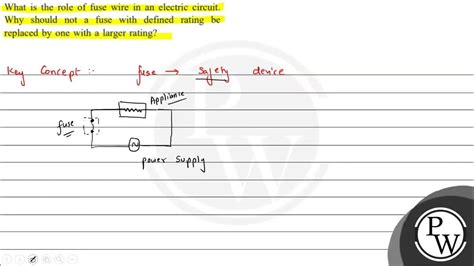 What is the role of fuse wire in an electric circuit.
Why should not a fuse with defined rating be
replaced by one with a larger rating?
Key Concept :- fuse → Safety device
Appliance
fuse
power supply
P
W
P
W